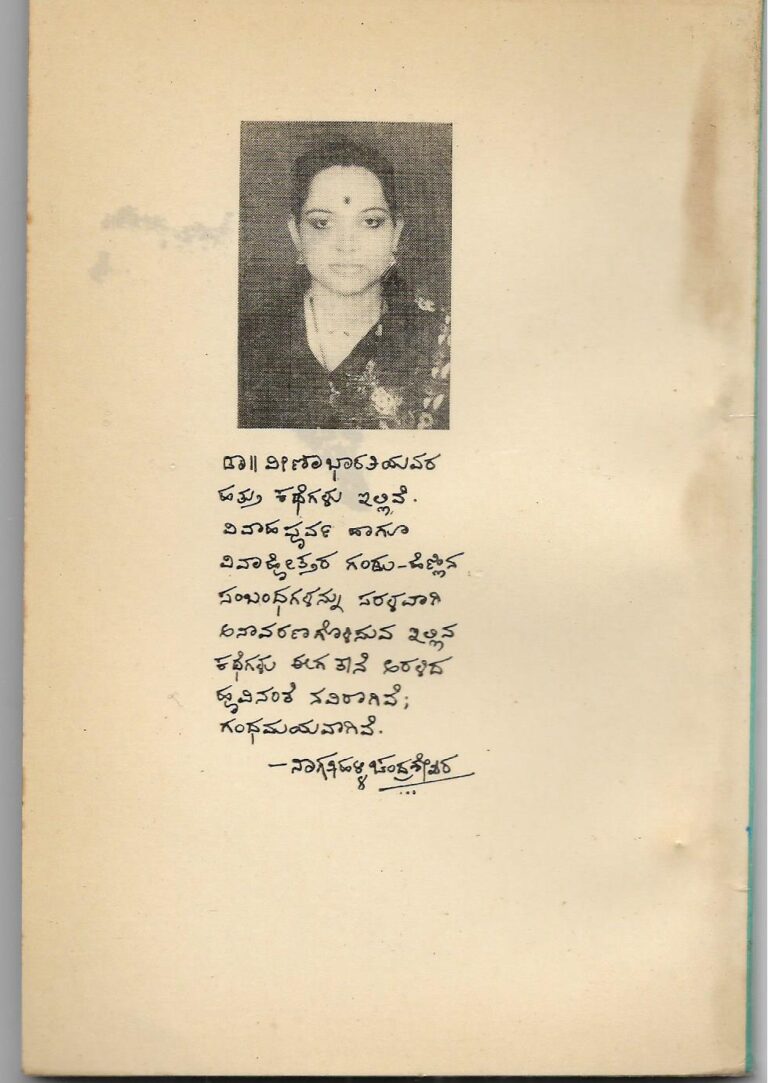 ಡಾ|| ವೀಣಾಭಾರತಿಯವರ
ಹತ್ತು ಕಥೆಗಳು ಇಲ್ಲಿವೆ.
ವಿವಾಹಪೂರ್ವ ಹಾಗೂ
ವಿವಾಹೋತ್ತರ ಗಂಡು-ಹೆಣ್ಣಿನ
ಸಂಬಂಧಗಳನ್ನು ಸರಳವಾಗಿ
ಅನಾವರಣಗೊಳಿಸುವ ಇಲ್ಲಿನ
ಕಥೆಗಳು ಈಗ ತಾನೆ ಅರಳಿದ
ಹೂವಿನಂತೆ ನವಿರಾಗಿವೆ;
ಗಂಧಮಯವಾಗಿವೆ.
– ನಾಗತಿಹಳ್ಳಿ ಚಂದ್ರಶೇಖರ